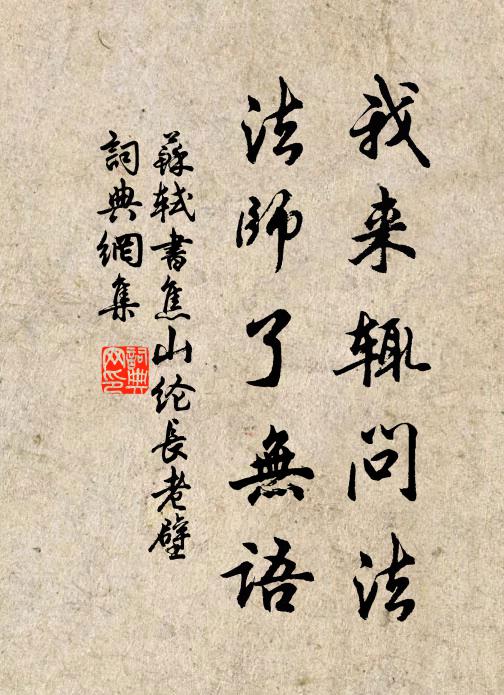 我来辄问法
法師了無語
蘇軾書焦山纶長老壁
詞典網集
詞典网印